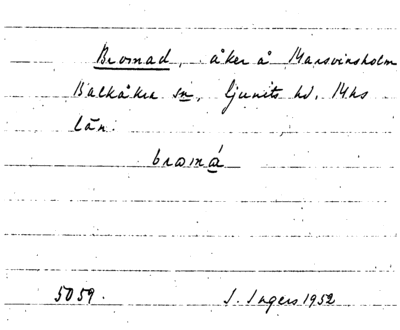 Bromad, åker å Marsvinsholm
Balkåkra sn, Ljunits hd, Mhs
län.
bromá
5059. S. Ingers 1952